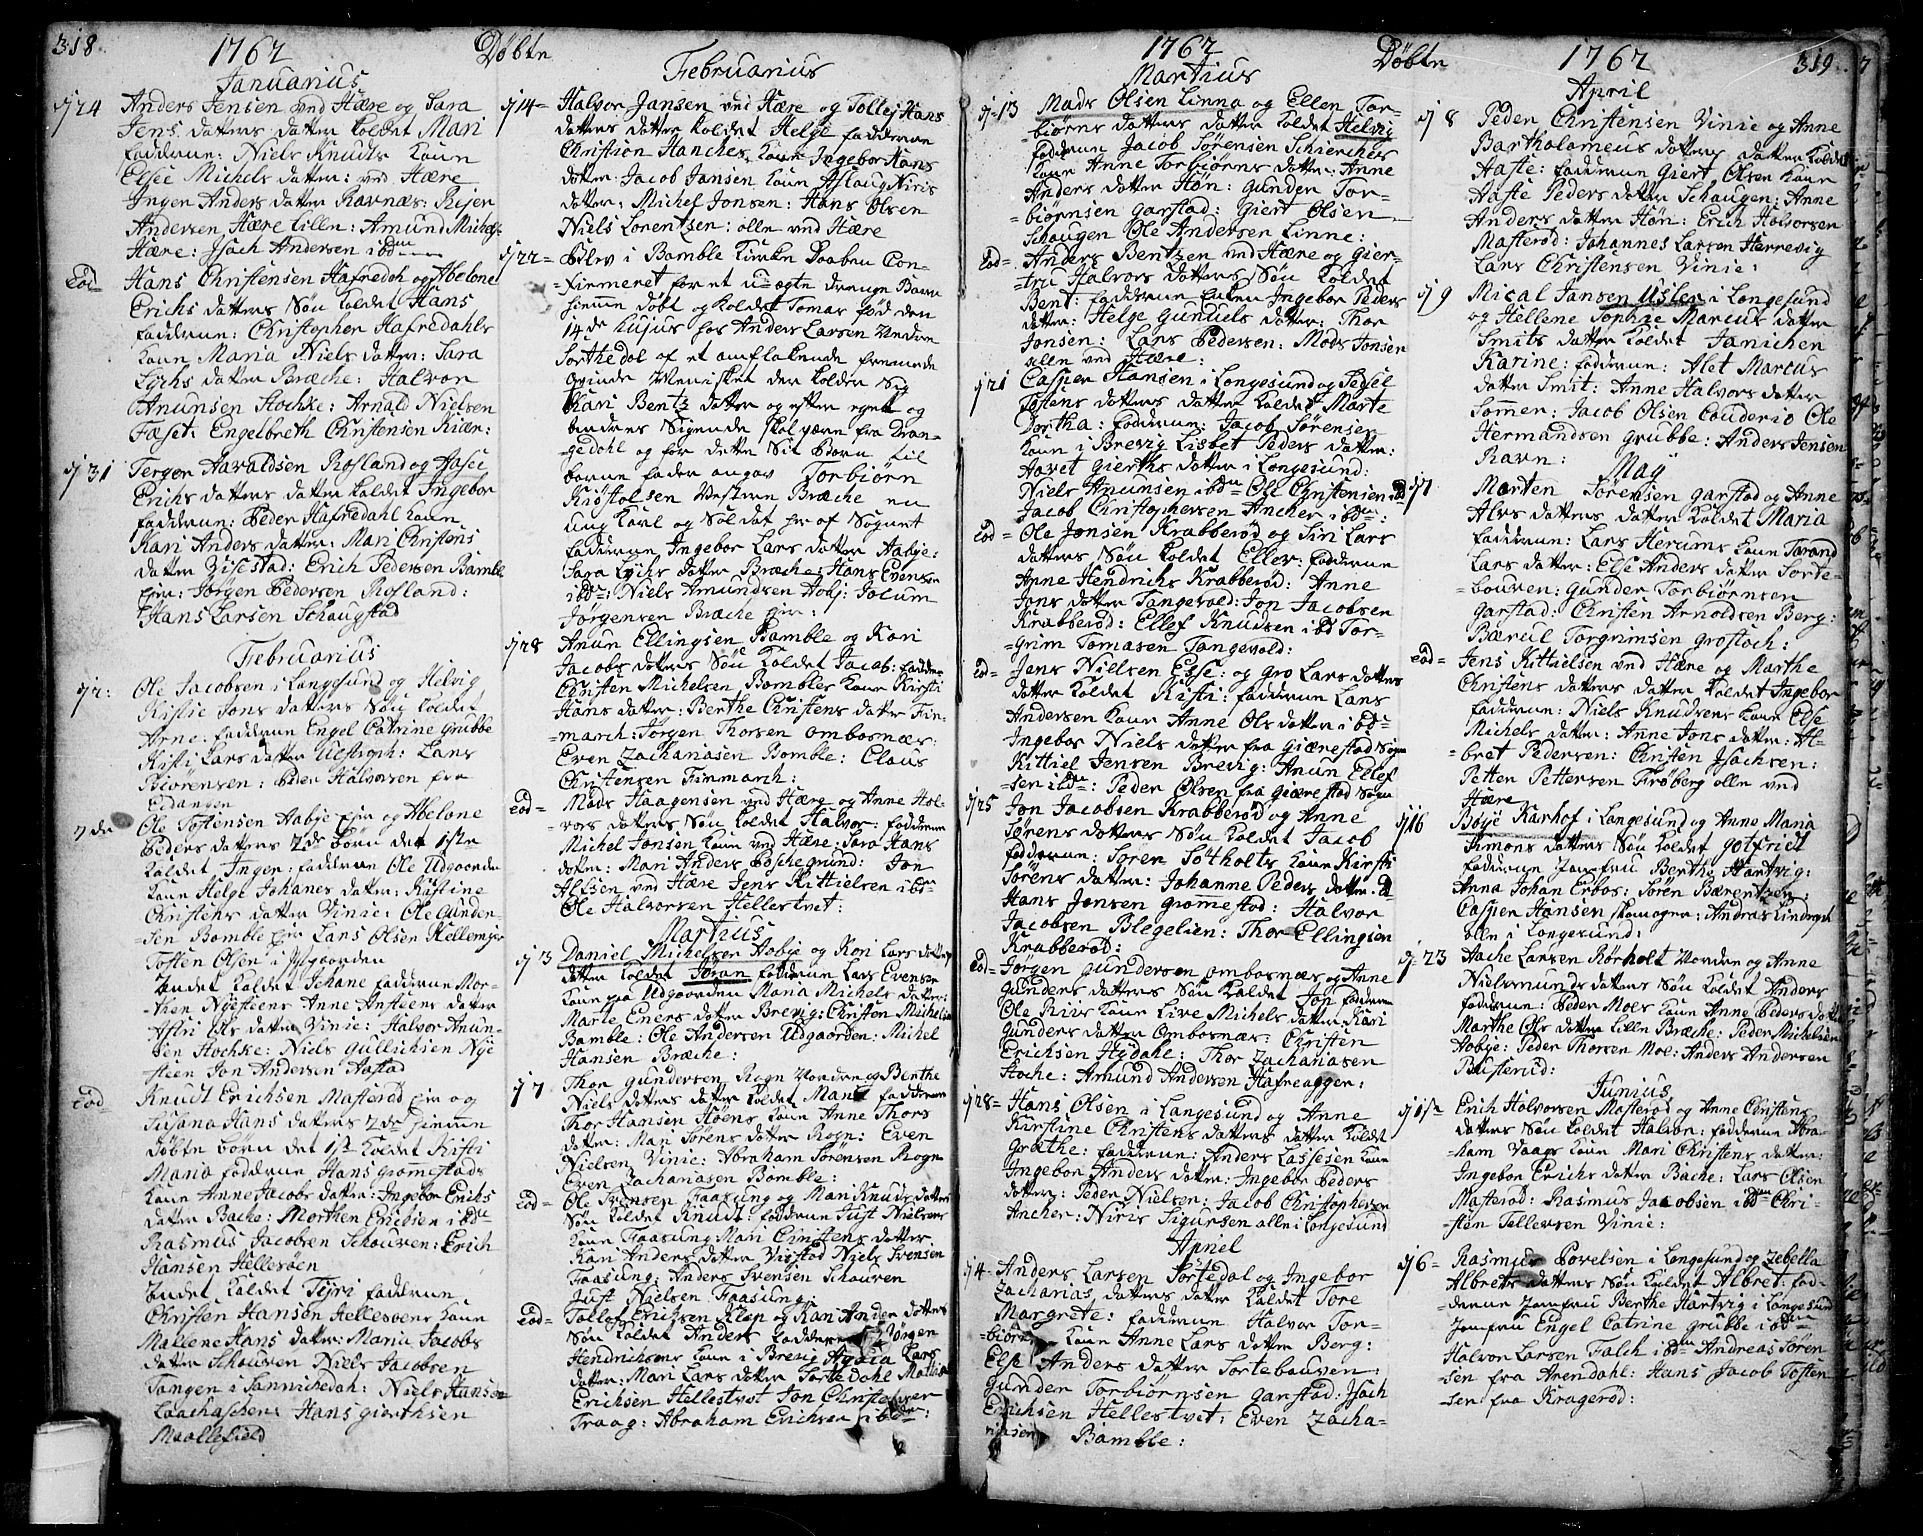 318.
1762
Döbte
Januarius
d/24 Anders Jensen ved Hære og Sara
Jens datters datter koldet Mari
fadderne: Niels Knudts Kone
Elsie Michels datter: ved Hære
Ingen Anders datter Ravnæs: Rejer
Andersen Hære lille: Amund Michels:
Hære: Isach Andersen ibdm
Eod= Hans Christensen Hafredahl og Abelone
Erichs datters Sön koldet Hans
fadderne: Christopher Hafredahls
Kone Maria Niels datter: Sara
Lychs datter Bræche: Halvor
Anunsen Stochke: Arnald Nielsen
Fæset: Engelbreth Christensen Kiær:
d/31 Terger Haraldsen Rosland og Aasee
Erichs datters datter koldet Ingebor
fadderne: Peder Hafredahl Kone
Kari Anders datter: Mari Christens
datter Visestad: Erich Pedersen Bamble
Eier: Jörgen Pedersen Rosland:
Hans Larsen Schaugstad
Februarius
d/2: Ole Jacobsen i Langesund og Helvig
Kistie Jons datters Sön koldet
Arne: fadderne Engel Catrine Grubbe
Kisti Lars datter Ulstvgh: Lars
Biörensen: Peder Halvorsen fra
Eidangen
7de Ole Tostensen Aabye Eier og Abelone
Peders datters 2de Börn det 1ste
koldet Ingen: fadderne Ole Udgaarden
Kone Helge Johanes datter: Kirstine
Christens datter Vinie: Ole Gunder-
=sen Bamble Eier Lars Olsen Hellemyr
Tosten Olsen i Udgaarden
Andet koldet Johane fadderne Mor-
=then Nysteens Anne Anstens datter
Astri Ols datter Vinie: Halvor Anun-
sen Stochke: Niels Gullichsen Nye
=steen Jon Andersen Aastad
Eod= Knudt Erichsen Masteröd Eier og
Susana Hans datters 2de Hiemme
Döbte börn det 1ste koldet Kisti
Maria fadderne Hans Grommestads
Kone Anne Jacobs datter: Ingebor Erichs
datter Bache: Morthen Erichsen ibdm
Rasmus Jacobsen Schouven: Erich
Hansen Hellesöen
Andet koldet Tijri fadderne
Christen Hansen Hellesöens Kone
Mallene Hans datter: Maria Jacobs
datter Schouven Niels Jacobsen
Tangen i Sannichedahl: Niels Hansen
Laachaschen: Hans Gierthsen
Maallefield
Februarius
d/14= Halvor Jansen ved Hære og Tollej Hans
datters datter koldet Helge fadderne
Christian Hanches Kone Ingebor Hans
dotter: Jacob Jansen Kone Aslaug Niris
datter: Michel Jonsen: Hans Olsen
Niels Lorentzen: alle ved Hære
d/22= Blev i Bamble Kirke Daaben Con-
=firmeret for et u=ægte drenge Barn
hiemme döbt og koldet Tomas föd den
14de hujus hos Anders Larsen Nedre
Sorthedol af et omflakende fremmede
qvinde Menisket der kolder Sig
Kari Bentz datter og efter egne og
andres Sigende skal være fra Dran-
gedahl og for dette Sit Barn til
barne fader angav Torbiörn
Kistolsen Vestere Bræche en
ung Karl og Soldat her af Sognet
fadderne Ingebor Lars datter Aabye:
Sara Lychs datter Bræche: Hans Evensen
ibdm: Niels Amundsen Aobj: Jocum
Jörgensen Bræche Eier:
d/28 Anun Ellingsen Bamble og Kari
Jacobs dotters Sön koldet Jacob: fadder
Christen Michelsen Bambles Kone Kirsti
Hans datter: Berthe Christens datter Fin-
=march: Jörgen Thorsen Ombosnæs:
Even Zachariasen Bamble: Claus
Christensen Finmarch:
Eod= Mads Haagensen ved Hære og Anne Hol-
vors dotters Sön koldet Halvor: fadderne
Michel Jonsen Kone ved Hære: Sara Hans
dotter: Mari Anders Böschegrund: Jon
Alsen ved Hære Jens Kittielsen ibdm
Ole Halvorsen Hellestvet:
Martius
d/3 Daniel Michelsen Aobye og Kari Lars dotters
datter koldet Jöran fadderne Lars Evensen
Kone paa Udgaarden Maria Michels datter:
Marte Eners datter Brevig: Christen Michelsen
Bamble: Ole Andersen Udgaarden: Michel
Hansen Bræche:
d/7 Thor Gundersen Rogn Vordre og Berthe
Niels datters datter koldet Mari fadderne
Thor Hansen Höens Kone Anne Thors
datter: Mari Sörens datter Rogn: Even
Nielsen Vinie: Abraham Sörensen Rogn
Even Zachariasen Bamble:
Eod= Ole Svensen Faasung og Mari Knuds datters
Sön koldet Knudt: fadderne Just Nielsens
Kone Faasung Mari Christens datter
Kari Anders datter Vigstad Niels Svensen
Faasung: Anders Svensen Schouven
Just Nielsen Faasung:
Eod= Tollof Erichsen Klep og Kari Anders dotters
Sön koldet Anders fadderne Jörgen
Hendrichsens Kone i Brevig Agata Lars
datter: Mari Lars datter Sortedahl Mathis
Erichsen Hellestvet Jon Christensen
Traag: Abraham Erichsen ibdm:
1762
Döbte
1762
319.
Martius
d/13 Mads Olsen Linna og Ellen Tor-
=biörns datters datter koldet Helvig
fadderne Jacob Sörensen Schierchess
Kone Anne Torbiörns datter: Anne
Anders datter Hön: Gunder Tor-
=biörnsen Garstad: Giert Olsen
Schaugen Ole Andersen Linne:
Eod= Anders Bentzen ved Hære og Gier-
tru Halvors datters Sön koldet
Bent: fadderne Enken Ingebor Peders
datter: Helge Gundels datter: Thor
Jonsen: Lars Pedersen: Mads Jonsen
alle ved Hære:
d/21 Casper Hansen i Langesund og Sesel
Tostens datters datter koldet Marte
Dortha: fadderne: Jacob Sörensen
Kone i Brevig Lisbet Peders datter:
Aaret Gierths datter i Langesund:
Niels Anunsen ibdm Ole Christensen ibd
Jacob Christophersen Ancher ibdm:
Eod= Ole Jonsen Krabberöd og Siri Lars
datters Sön koldet Ellev: fadderne
Anne Hendrichs Krabberöd: Anne
Jons datter Tangevald: Jon Jacobsen
Krabberöd: Ellef Knudsen ibd Tor-
=grim Tomasen Tangevald:
Eod= Jens Nielsen Esse: og Gro Lars dotters
datter koldet Kisti: fadderne Lars
Andersen Kone Anne Ols datter ibdm
Ingebor Niels datter fra Giærestad Sogn
Kittiel Jensen Brevig: Anun Ellef
sen ibdm: Peder Olsen fra Giærestad Sogn
d/25 Jon Jacobsen Krabberöd og Anne
Sörens datters Sön koldet Jacob
fadderne: Sören Sötholts Kone Kirsti
Sörens datter: Johanne Peders dotter.
Hans Jonsen Gromestad: Halvor
Jacobsen Blegelien: Thor Ellingsen
Krabberöd:
Eod= Jörgen Gundersen Ombosnæs og Anne
Gunders datters Sön koldet Jon fadderne
Ole Riis Kone Live Michels datter: Kari
Gunders datter Ombosnæs: Christen
Erichsen Hydahl: Thor Zachariasen
Stoche: Amund Andersen Hafreagger:
d/28= Hans Olsen i Langesund og Anne
Kirstine Christens datters datter koldet
Grathe: fadderne: Anders Lassesen Kone
Ingebor Anders datter: Ingebor Peders
dotter: Peder Nielsen: Jacob Christophersen
Ancher: Niris Sigursen alle i Langesund
Apriel
d/4. Anders Larsen Sortedal og Ingebor
Zacharias datters datter koldet Tore
Margrete: fadderne Halvor Tor-
=biörn Kone Anne Lars datter Berg:
Else Anders datter Sortebouven:
Gunder Torbiörnsen Garstad: Isach
Erichsen Hellestvet: Even Zacha-
riasen Bamble:
April
d/8 Peder Christensen Vinie og Anne
Bartholomeus datters datter koldet
Aaste: fadderne Giert Olsen Kone
Aaste Peders datter Schaugen: Anne
Anders datter Hön: Erich Halvorsen
Masteröd: Johannes Larsen Herrevig
Lars Christensen Vinie:
d/9 Mical Jansen Usler i Langesund
og Hellene Sophie Marcus datter
Smits datter koldet Janichen
Karine: fadderne: Alet Marcus
datter Smit: Anne Halvors datter
Sommer: Jacob Olsen Couderio Ole
Hermandsen Grubbe: Anders Jensen
Ravn:
Maij
d/7 Morten Sörensen Garstad og Anne
Alvs datters datter koldet Maria
fadderne: Lars Herums Kone Tarand
Lars datter: Else Anders datter Sorte-
bouven: Gunder Torbiörnsen
Garstad: Christen Arnoldsen Berg:
Bærul Torgrimsen Grostoch:
Eod= Jens Kittielsen ved Hære og Marthe
Christens datters datter koldet Ingebor
fadderne: Niels Knudsens Kone Else
Michels datter: Anne Jons datter: Al-
=bret Pedersen: Christen Isachsen:
Petter Pettersen Friberg alle ved
Hære
d/16 Böye Karhof i Langesund og Anne Maria
Simons datters Sön koldet Gotfriet
fadderne Jomfru Berthe Hartvig:
Anna Johan Erbos: Sören Bærentzen:
Casper Hansen skomager: Andreas Lindegst
alle i Langesund:
d/23 Aache Larsen Rörholt Vordre og Anne
Nielsmunds datters Sön koldet Anders
fadderne: Peder Moes Kone Anne Peders dotter
Marthe Ols datter lille Bræche: Peder Michelsen
Aobye: Peder Thorsen Moe: Anders Andersen
Rusterud:
Junius
d/1ste Erich Halvorsen Masteröd og Anne Christens
datters Sön koldet Halvor: fadderne Abra-
=ham Vaags Kone Mari Christens datter:
Ingebor Erichs datter Bache: Lars Olsen
Masteröd: Rasmus Jacobsen ibdm Chri-
=sten Tellevsen Vinie:
d/6= Rasmus Povelsen i Langesund og Zebella
Albrets datters Sön koldet Albret: fad-
=derne Jomfru Berthe Hartvig i Langesund
Jomfru Engel Catrine Grubbe ibdm
Halvor Larsen Falch ibdm Andreas Sören
sen fra Arendahl: Hans Jacob Tosten
sen fra Kragerød: